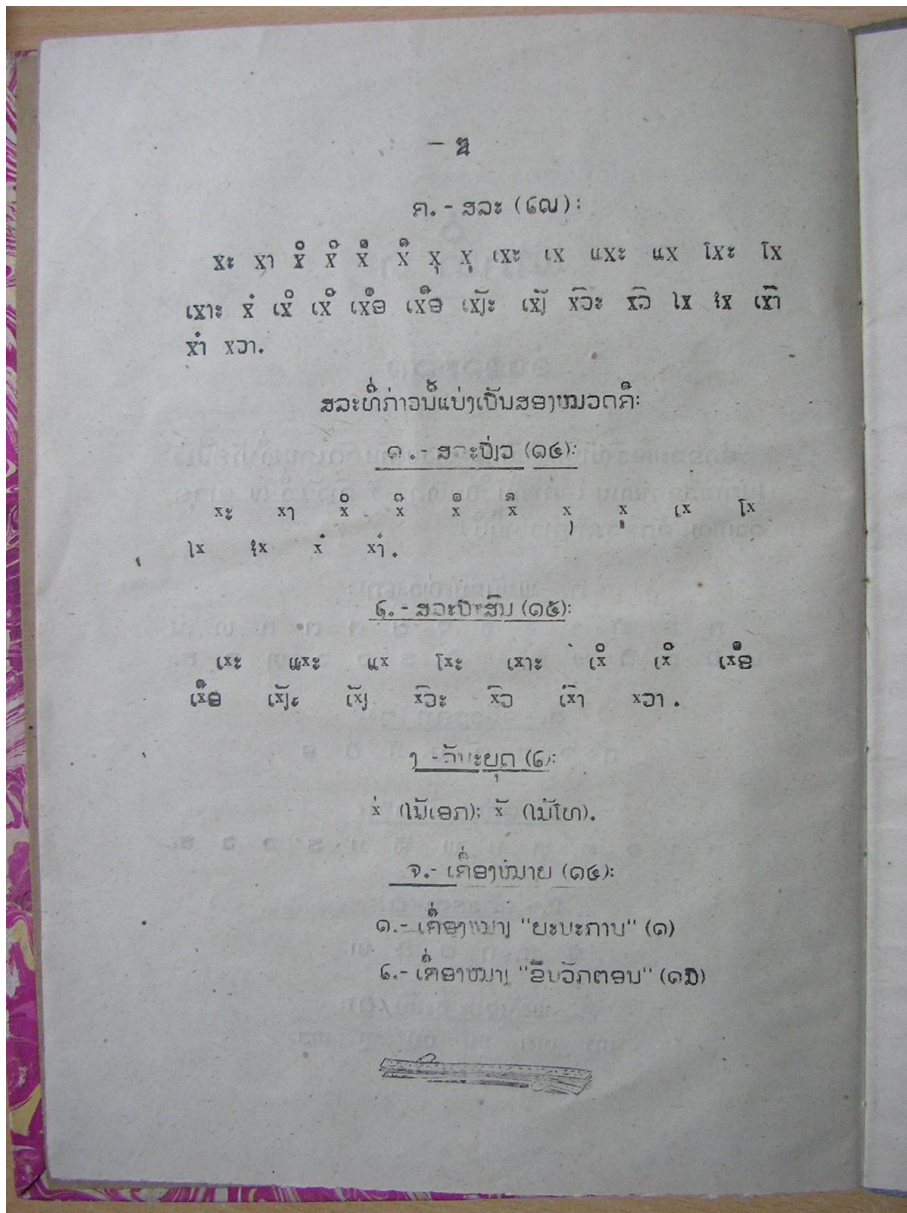 ຄ. - ສລະ (໒໙):
xະ xາ xິ xີ xຶ xື xຸ xູ ເxະ ເx ແxະ ແx ໂxະ ໂx
ເxາະ xໍ ເxິ ເxີ ເxຶອ ເxືອ ເxັຽະ ເxັຽ xົວະ xົວ ໄx ໃx ເxົາ
xຳ xວາ.
ສລະທີ່ກ່າວນີ້ແບ່ງເປັນສອງໝວດຄື:
໑.- ສລະປ່ຽວ (໑໔):
xະ xາ xິ xີ xຶ xື xຸ xູ ເx ໂx
ໄx ໃx xໍ xຳ.
໒.- ສລະປະສົມ (໑໕):
ເxະ ແxະ ແx ໂxະ ເxາະ ເxິ ເxີ ເxຶອ
ເxືອ ເxັຽະ ເxັຽ xົວະ xົວ ເxົາ xວາ.
ງ - ວັນະຍຸດ (໒):
x່ (ໄມ້ເອກ); x້ (ໄມ້ໂທ).
ຈ.- ເຄື່ອງໝາຍ (໑໔):
໑.- ເຄື່ອງໝາຽ "ຍະບະກາບ" (໑)
໒.- ເຄື່ອງໝາຽ "ຂັ້ນວັກຕອນ"